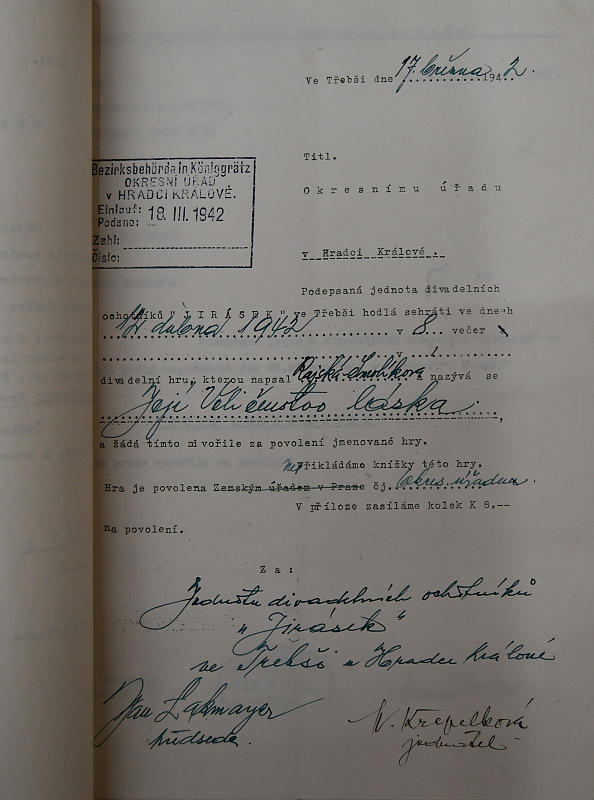 Ve Třebši dne 17. března 1942.
Bezirksbehörde in Königgrätz
OKRESNÍ ÚŘAD
v HRADCI KRÁLOVÉ.
Einlauf:
Podáno: 18. III. 1942
Zahl:
Číslo:
Titl.
Okresnímu úřadu
v Hradci Králové.
Podepsaná jednota divadelních
ochotníků "JIRÁSEK" ve Třebši hodlá sehráti ve dnech
12. dubna 1942 v 8 večer
v
divadelní hru, kterou napsal Rajská-Smolíková a nazývá se
Její Veličenstvo láska.,
a žádá tímto zdvořile za povolení jmenované hry.
nePřikládáme knížky této hry.
Hra je povolena Zemským úřadem v Praze čj. okres. úřadem.
V příloze zasíláme kolek K 8.--
na povolení.
Za:
Jednotu divadelních ochotníků
"Jirásek"
ve Třebši u Hradce Králové
Jan Lakmayer
předseda.
V. Křepelková
jednatel.